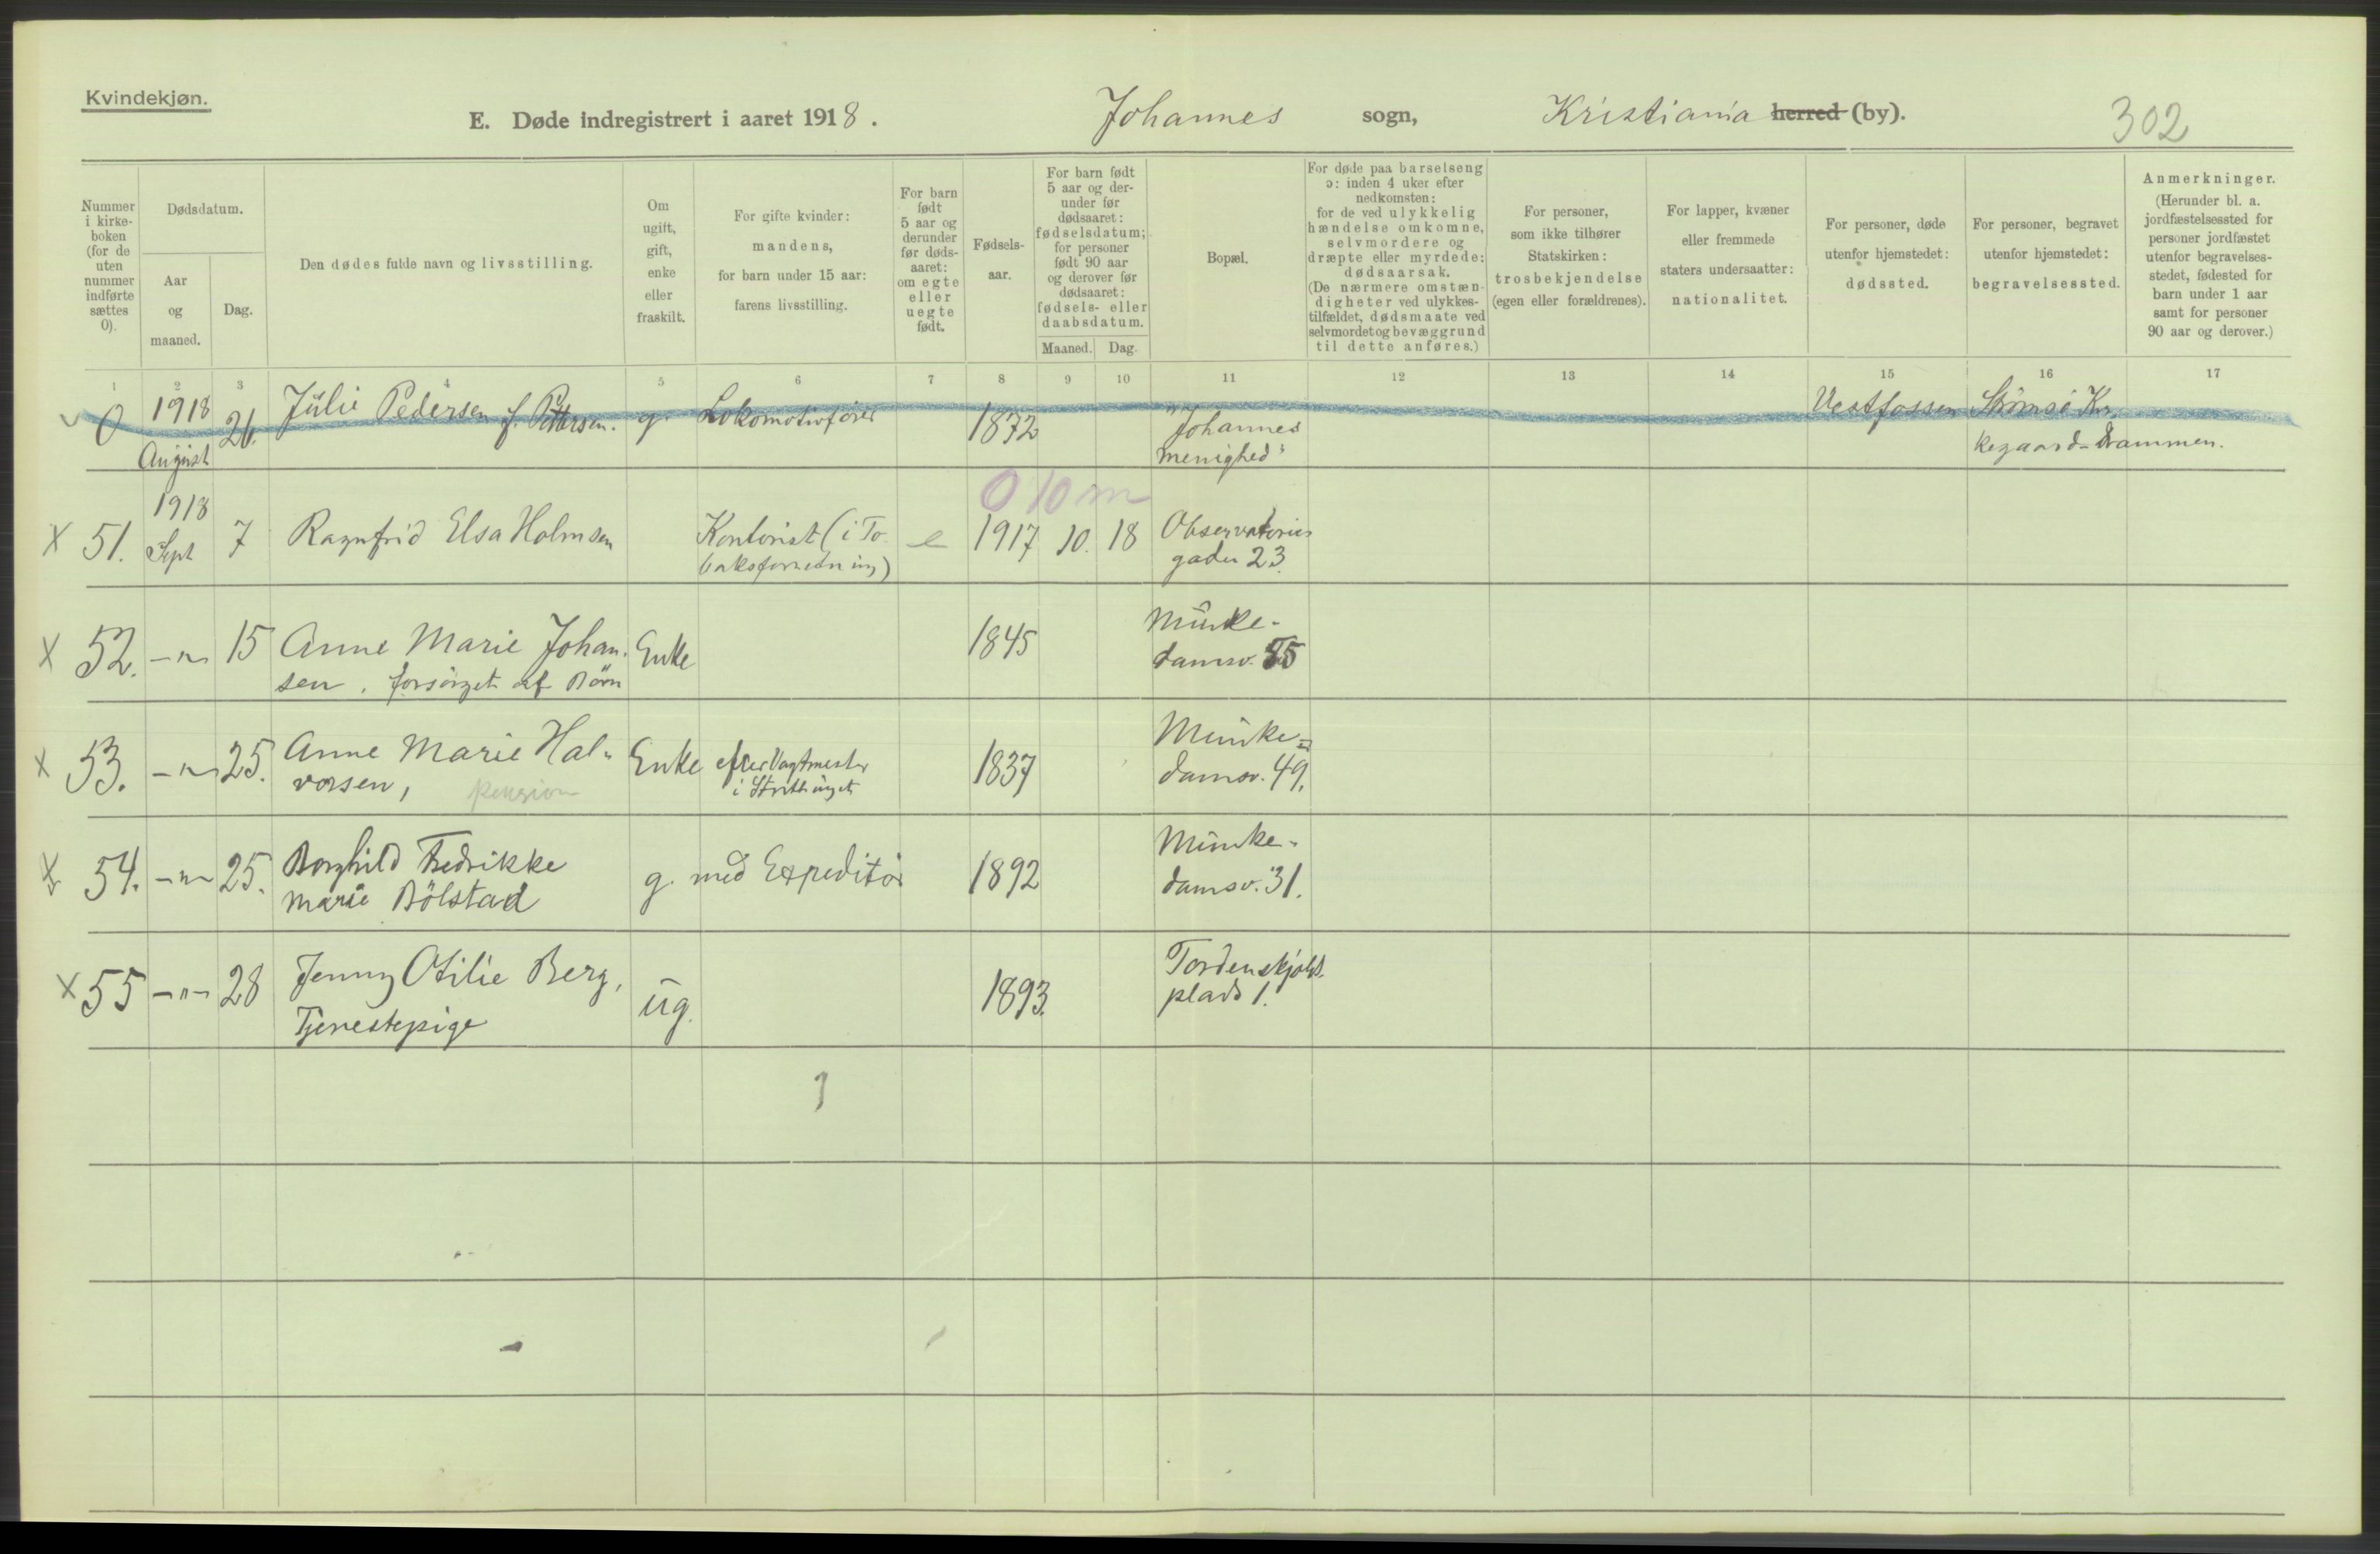 Kvindekjøn.
E. Døde indregistrert i aaret 1918. Johannes sogn, Kristiania herred (by). 302
Nummer i kirke-boken (for de uten nummer indførte sættes 0).
Dødsdatum.
Aar og maaned.
Dag.
Den dødes fulde navn og livsstilling.
Om ugift, gift, enke eller fraskilt.
For gifte kvinder: mandens, for barn under 15 aar: farens livsstilling.
For barn født 5 aar og derunder før døds-aaret: om egte eller uegte født.
Fødsels-aar.
For barn født 5 aar og der-under før dødsaaret: fødselsdatum; for personer født 90 aar og derover før dødsaaret: fødsels- eller daabsdatum.
Maaned. Dag.
Bopæl.
For døde paa barselseng ɔ: inden 4 uker efter nedkomsten: for de ved ulykkelig hændelse omkomne, selvmordere og dræpte eller myrdede: dødsaarsak. (De nærmere omstæn-digheter ved ulykkes-tilfældet, dødsmaate ved selvmordet og bevæggrund til dette anføres.)
For personer, som ikke tilhører Statskirken: trosbekjendelse (egen eller forældrenes).
For lapper, kvæner eller fremmede staters undersaatter: nationalitet.
For personer, døde utenfor hjemstedet: dødssted.
For personer, begravet utenfor hjemstedet: begravelsessted.
Anmerkninger. (Herunder bl. a. jordfæstelsessted for personer jordfæstet utenfor begravelses-stedet, fødested for barn under 1 aar samt for personer 90 aar og derover.)
1 2 3 4 5 6 7 8 9 10 11 12 13 14 15 16 17
0 1918 August 26. Julie Pedersen f. Pettersen. g. Lokomotivfører 1872 "Johannes menighed" Vestfossen Strømsø Kir-
kegaard - Drammen.
0 10 m
x 51. 1918 Sept 7 Ragnfrid Elsa Holmsen Kontorist (i To-
baksforretning) e 1917 10. 18 Observatorie
gaden 23.
x 52. -"- 15 Anne Marie Johan-
sen, forsørget af Børn Enke 1845 Munke-
damsv.
x 53. -"- 25. Anne Marie Hal-
vorsen, pension Enke efter Vagtmester
i Storthinget 1837 Munke-
damsv. 49.
x 54. -"- 25. Borghild Fredrikke
Marie Bölstad g. med Expeditør 1892 Munke-
damsv. 31.
x 55 -"- 28 Jenny Otilie Berg,
Tjenestepige ug. 1893. Tordenskjolds
plads 1.